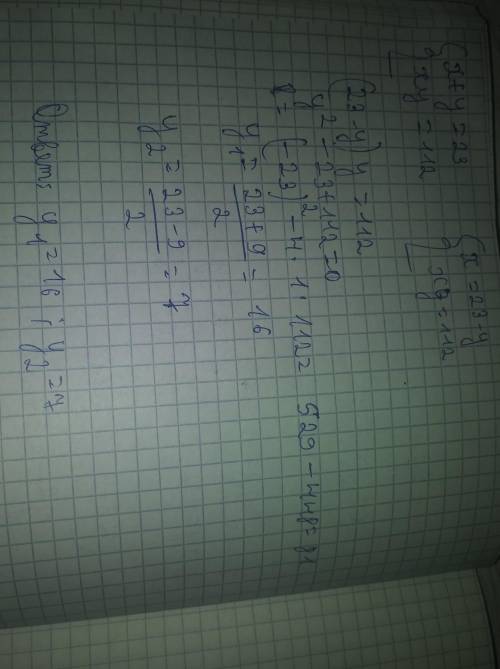 {x+y=23 {x=23-y
{xy=112 {xy=112
(23-y)y=112
y²-23+112=0
D=(-23)²-4·1·112=529-448=81
y₁=(23+9)/2=16
y₂=(23-9)/2=7
Ответ: y₁=16; y₂=7